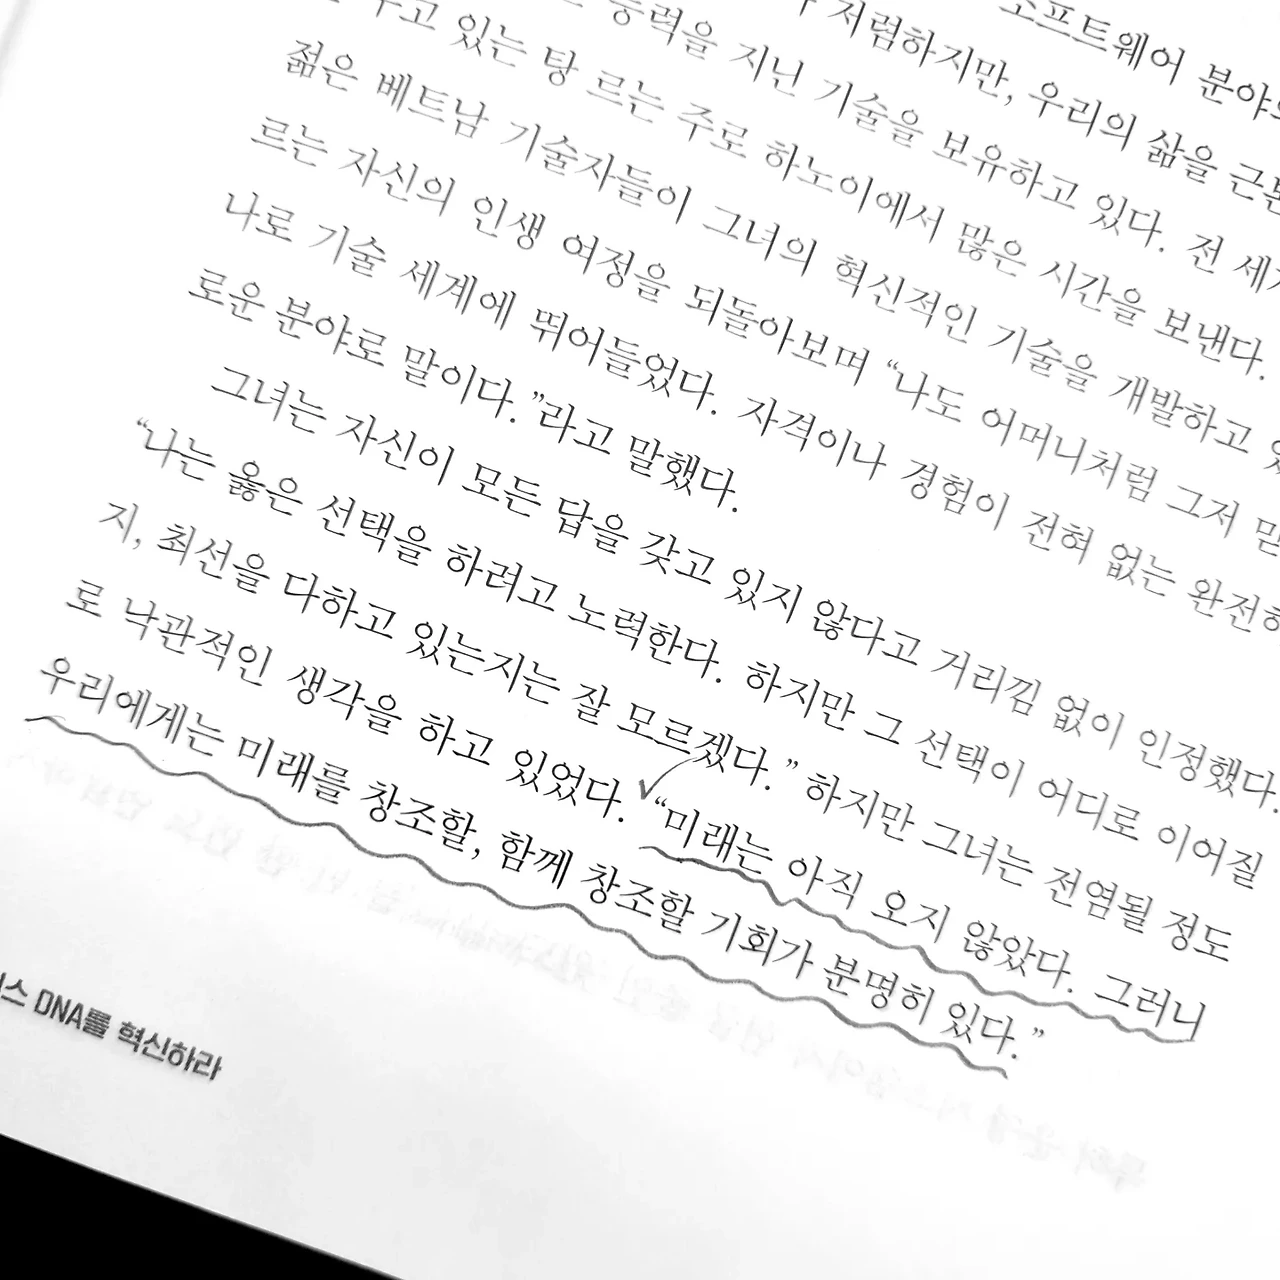 소프트웨어 분야의
저렴하지만, 우리의 삶을
능력을 지닌 기술을 보유하고 있다. 전 세계
있는 탕 르는 주로 하노이에서 많은 시간을 보낸다.
젊은 베트남 기술자들이 그녀의 혁신적인 기술을 개발하고
르는 자신의 인생 여정을 되돌아보며 “나도 어머니처럼 그저
나로 기술 세계에 뛰어들었다. 자격이나 경험이 전혀 없는 완전히
로운 분야로 말이다.”라고 말했다.
그녀는 자신이 모든 답을 갖고 있지 않다고 거리낌 없이 인정했다.
“나는 옳은 선택을 하려고 노력한다. 하지만 그 선택이 어디로 이어질
지, 최선을 다하고 있는지는 잘 모르겠다.” 하지만 그녀는 전염될 정도
로 낙관적인 생각을 하고 있었다. “미래는 아직 오지 않았다. 그러니
우리에게는 미래를 창조할, 함께 창조할 기회가 분명히 있다.”
스 DNA를 혁신하라